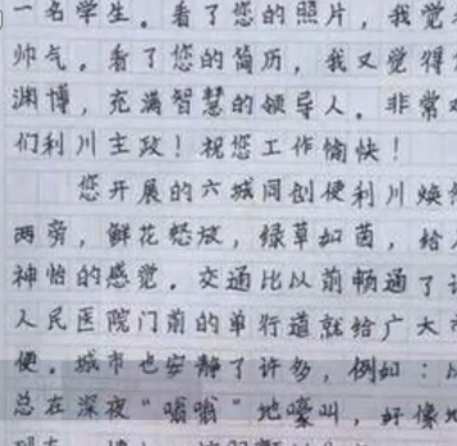 一名学生。看了您的照片，我觉
帅气。看了您的简历，我又觉得
渊博，充满智慧的领导人。非常
们利川主政！祝您工作愉快！
您开展的六城同创使利川焕
两旁，鲜花怒放，绿草如茵，给
神怡的感觉。交通比以前畅通了
人民医院门前的单行道就给广大
便。城市也安静了许多，例如：
总在深夜“嗡嗡”地嚎叫，好像